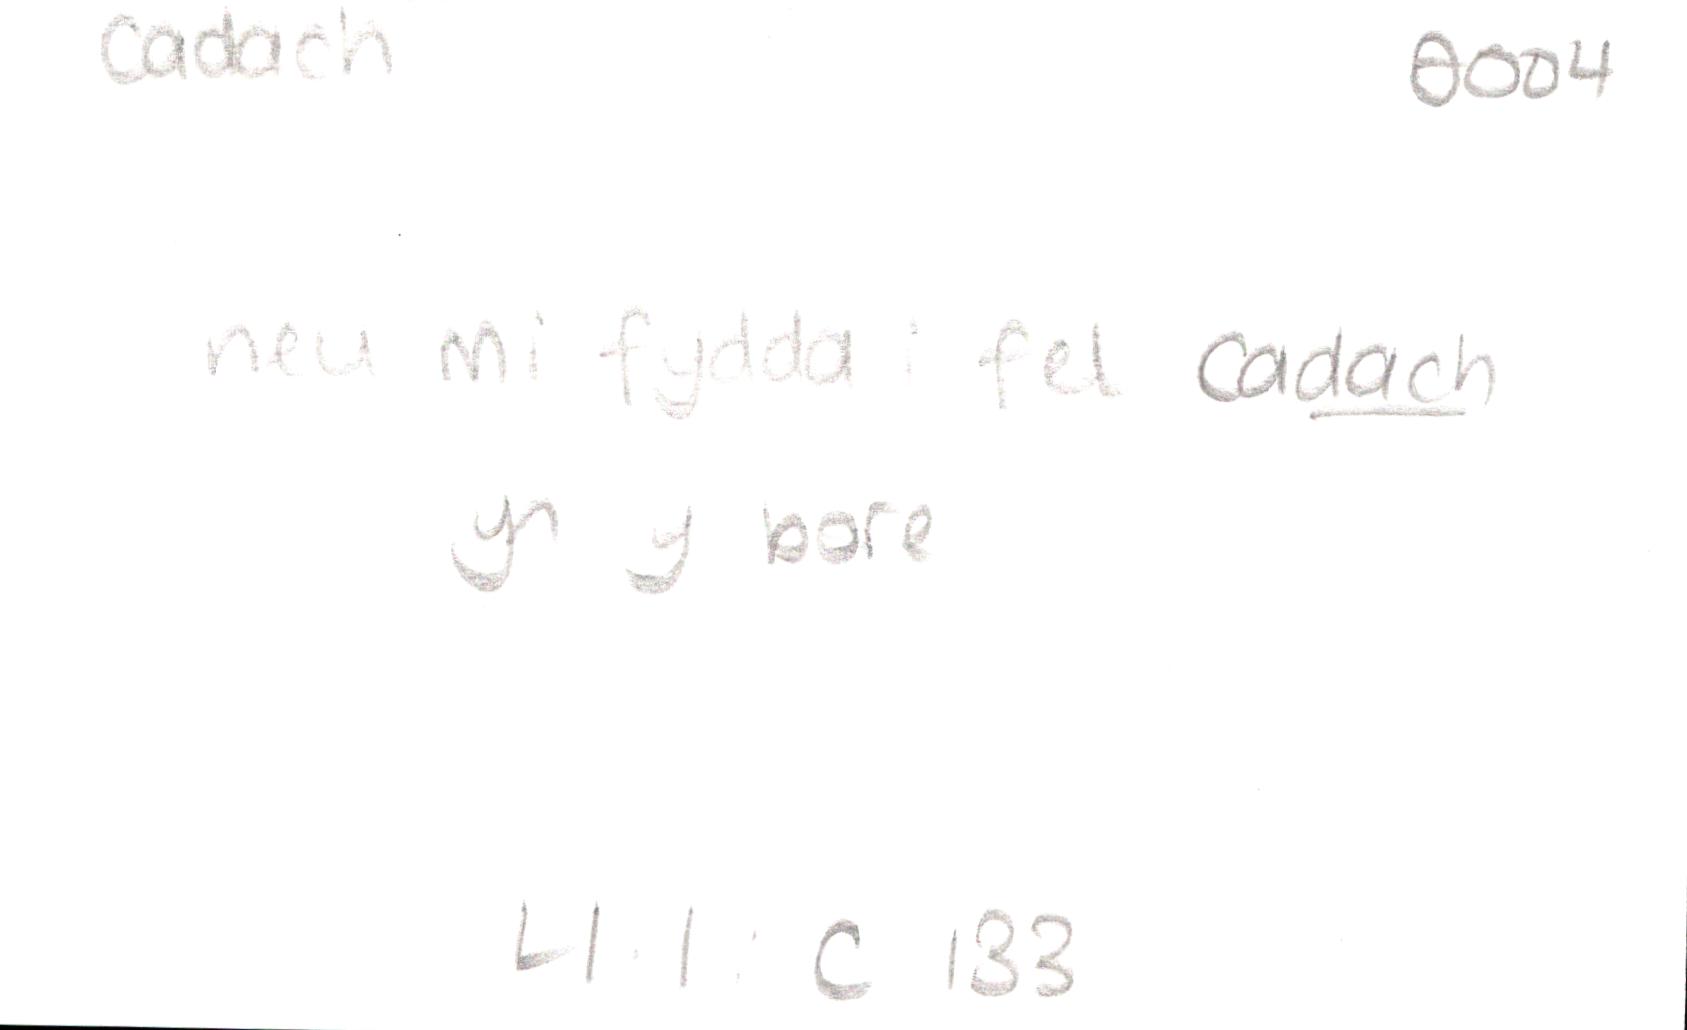 Cadach 0004
neu mi fydda i fel cadach
yn y bore
Ll.1: C 133